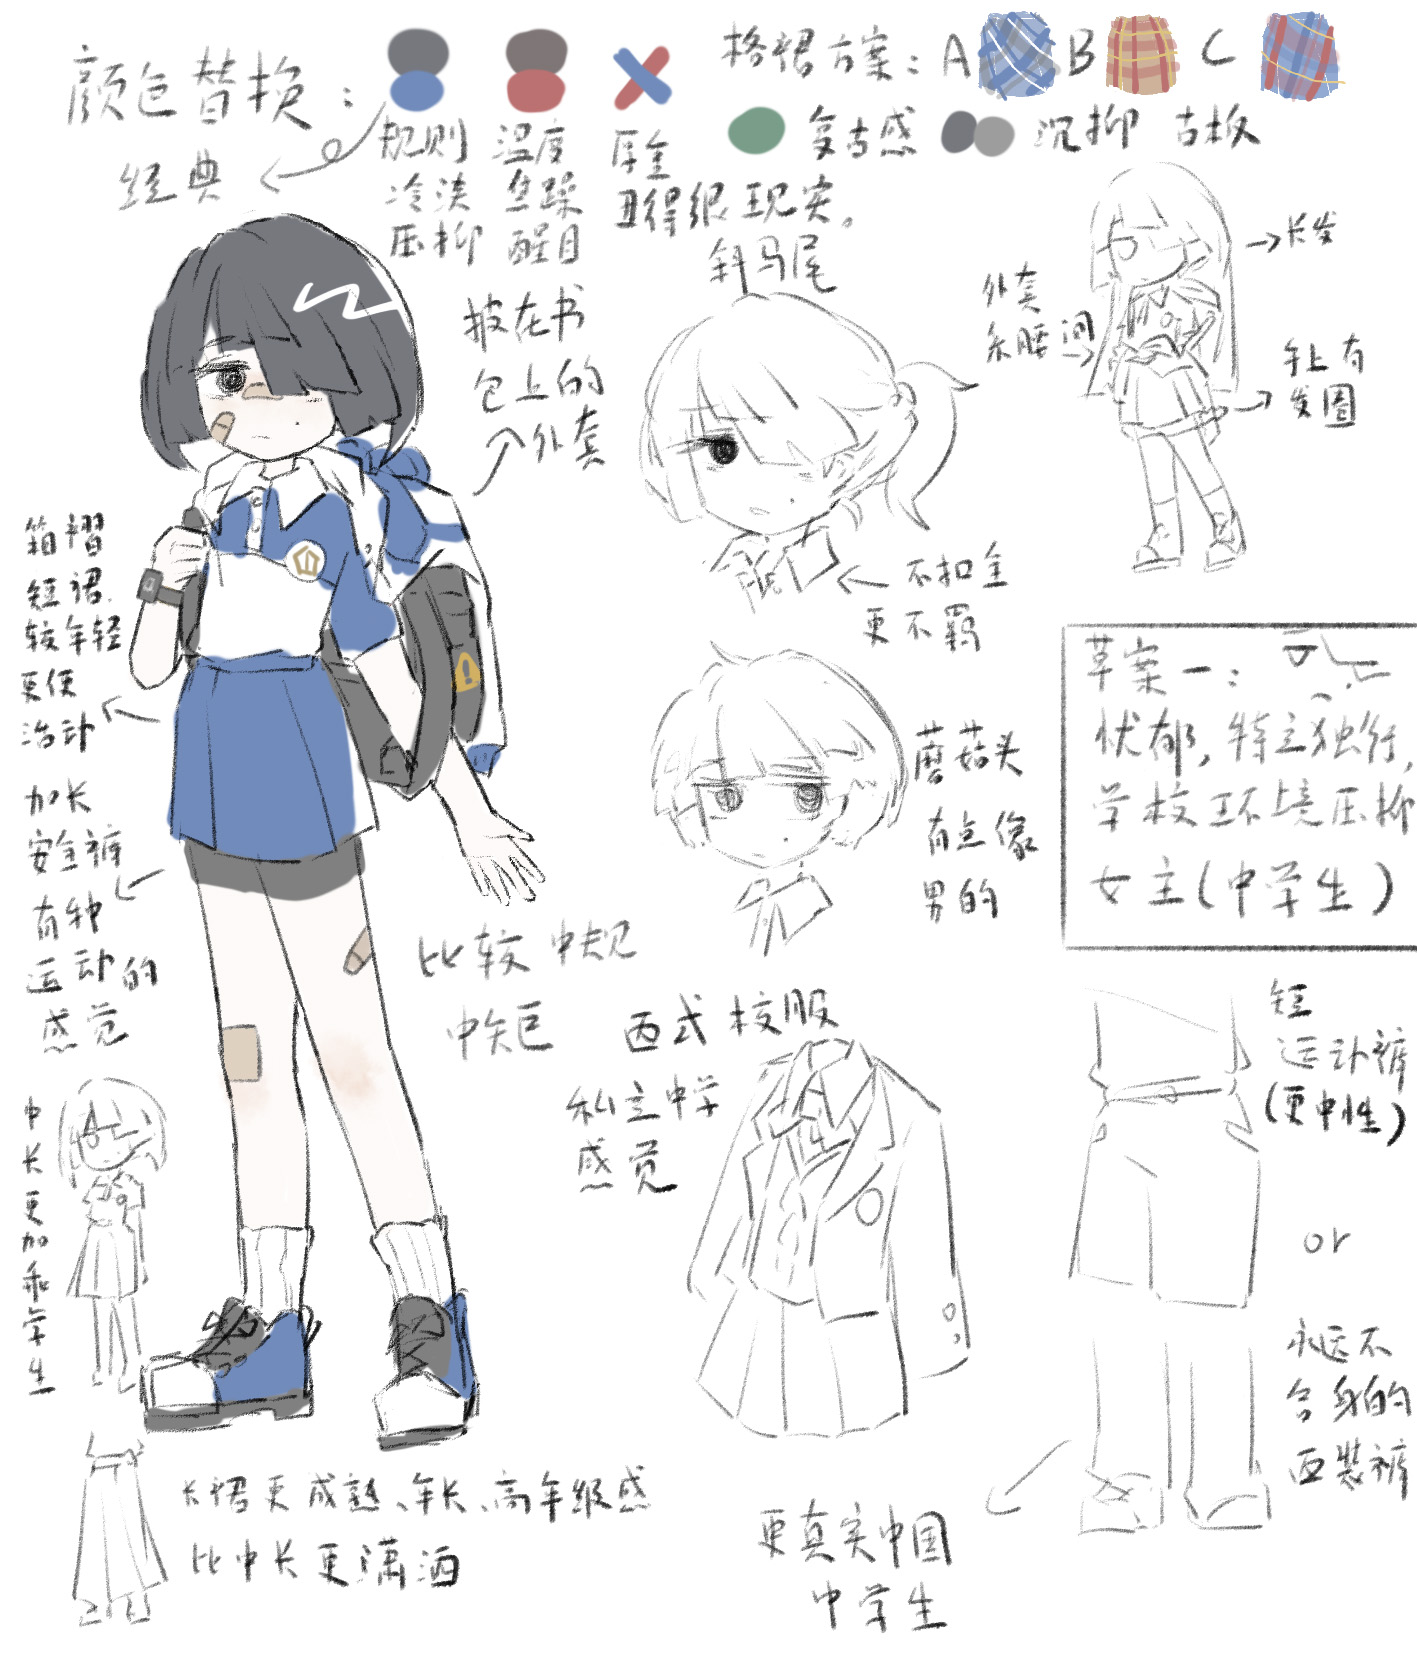 颜色替换：
经典
规则
冷淡
压抑
温度
焦躁
醒目
丑得很现实。
格裙方案：A B C
复古感
沉抑 古板
斜马尾
披在书
包上的
外套
外套
系腰间
→长发
手上有
发圈
不扣全
更不羁
箱褶
短裙.
较年轻
更便
活动
加长
安全裤
有种
运动的
感觉
蘑菇头
有点像
男的
草案一：
忧郁，特立独行，
学校环境压抑
女主（中学生）
比较中规
中矩
西式校服
私立中学
感觉
短
运动裤
（更中性）
or
永远不
合身的
西装裤
中长更加乖学生
长裙更成熟、年长、高年级感
比中长更潇洒
更真实中国
中学生